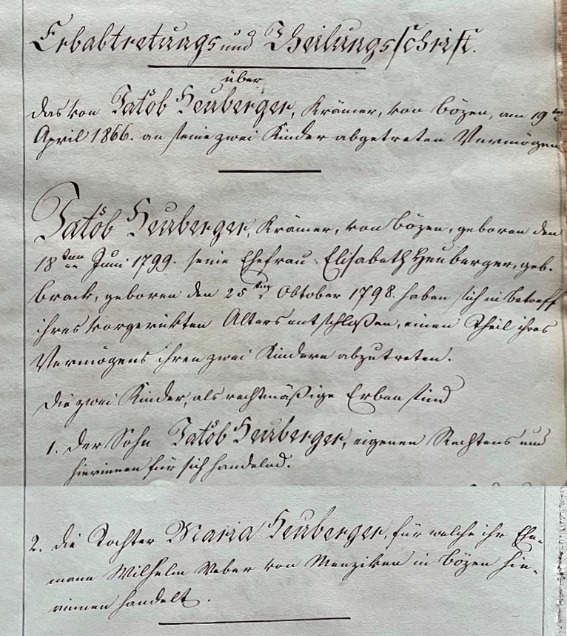 Erbabtretungs und Theilungsschrift.
über
das von Jakob Heuberger, Krämer, von Bözen, am 19ten
April 1866. an seine zwei Kinder abgetreten Vermögen
Jakob Heuberger, Krämer, von Bözen, geboren den
18ten Juni 1799. seine Ehefrau Elisabeth Heuberger, geb.
Brack, geboren den 25ten Oktober 1798. haben sich in betreff
ihres vorgerükten Alters entschlossen, einen Theil ihres
Vermögens ihren zwei Kindern abzutreten.
Die zwei Kinder, als rechtmäßige Erben sind
1. Der Sohn Jakob Heuberger, eigenen Rechtens und
hierinnen für sich handelnd.
2. die Tochter Maria Heuberger, für welche ihr Ehe-
mann Wilhelm Weber von Menziken in Bözen hie-
rinnen handelt.